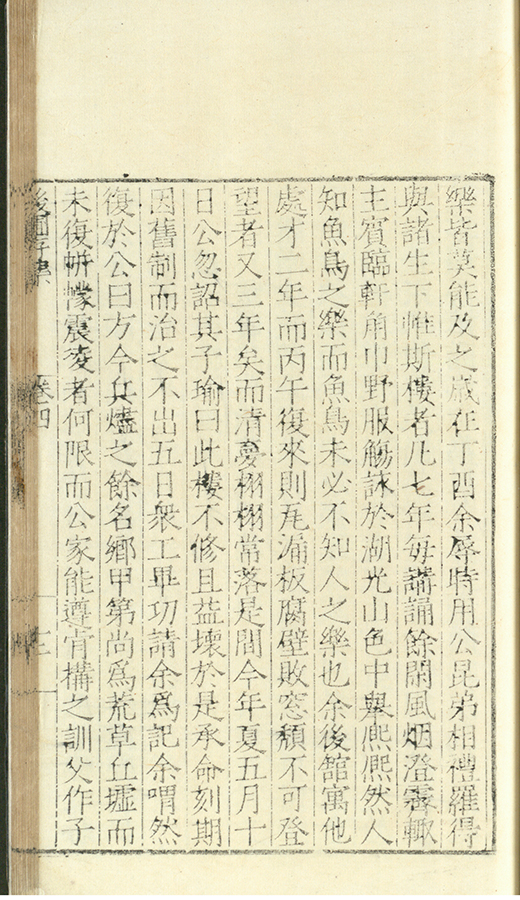 樂皆莫能及之歲在丁酉余辱時用公昆弟相禮羅得
與諸生下帷斯樓者凡七年每講誦餘閑風烟澄霽輙
主賓臨軒角巾野服觴詠於湖光山色中舉熈熈然人
知魚鳥之樂而魚鳥未必不知人之樂也余後舘寓他
處才二年而丙午復來則瓦漏板腐壁敗窓頹不可登
望者又三年矣而清夢栩栩常落是間今年夏五月十
日公忽詔其子瑜曰此樓不修且益壞於是承命刻期
因舊制而治之不出五日衆工畢功請余爲記余喟然
復於公曰方今兵燼之餘名鄉甲第尚爲荒草丘墟而
未復帡幪震凌者何限而公家能遵肯構之訓父作子
後圃存槀
卷四
三